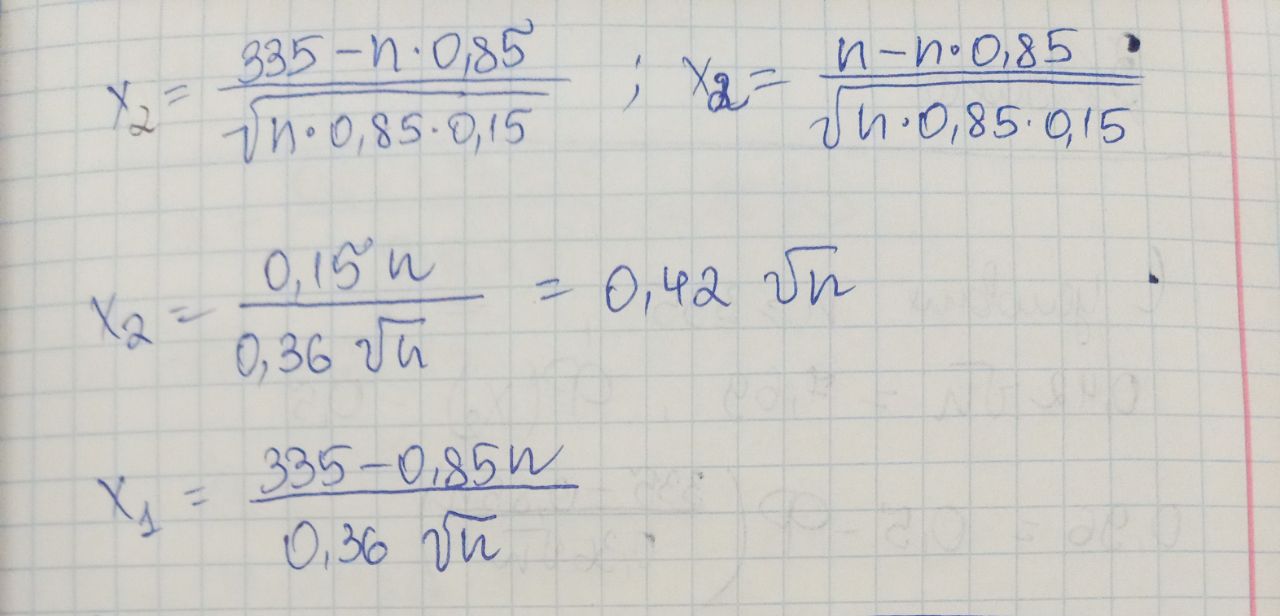 x₂ = (335 − n · 0,85) / √(n · 0,85 · 0,15) ; x₂ = (n − n · 0,85) / √(n · 0,85 · 0,15)
x₂ = 0,15 n / 0,36 √n = 0,42 √n
x₁ = (335 − 0,85 n) / 0,36 √n